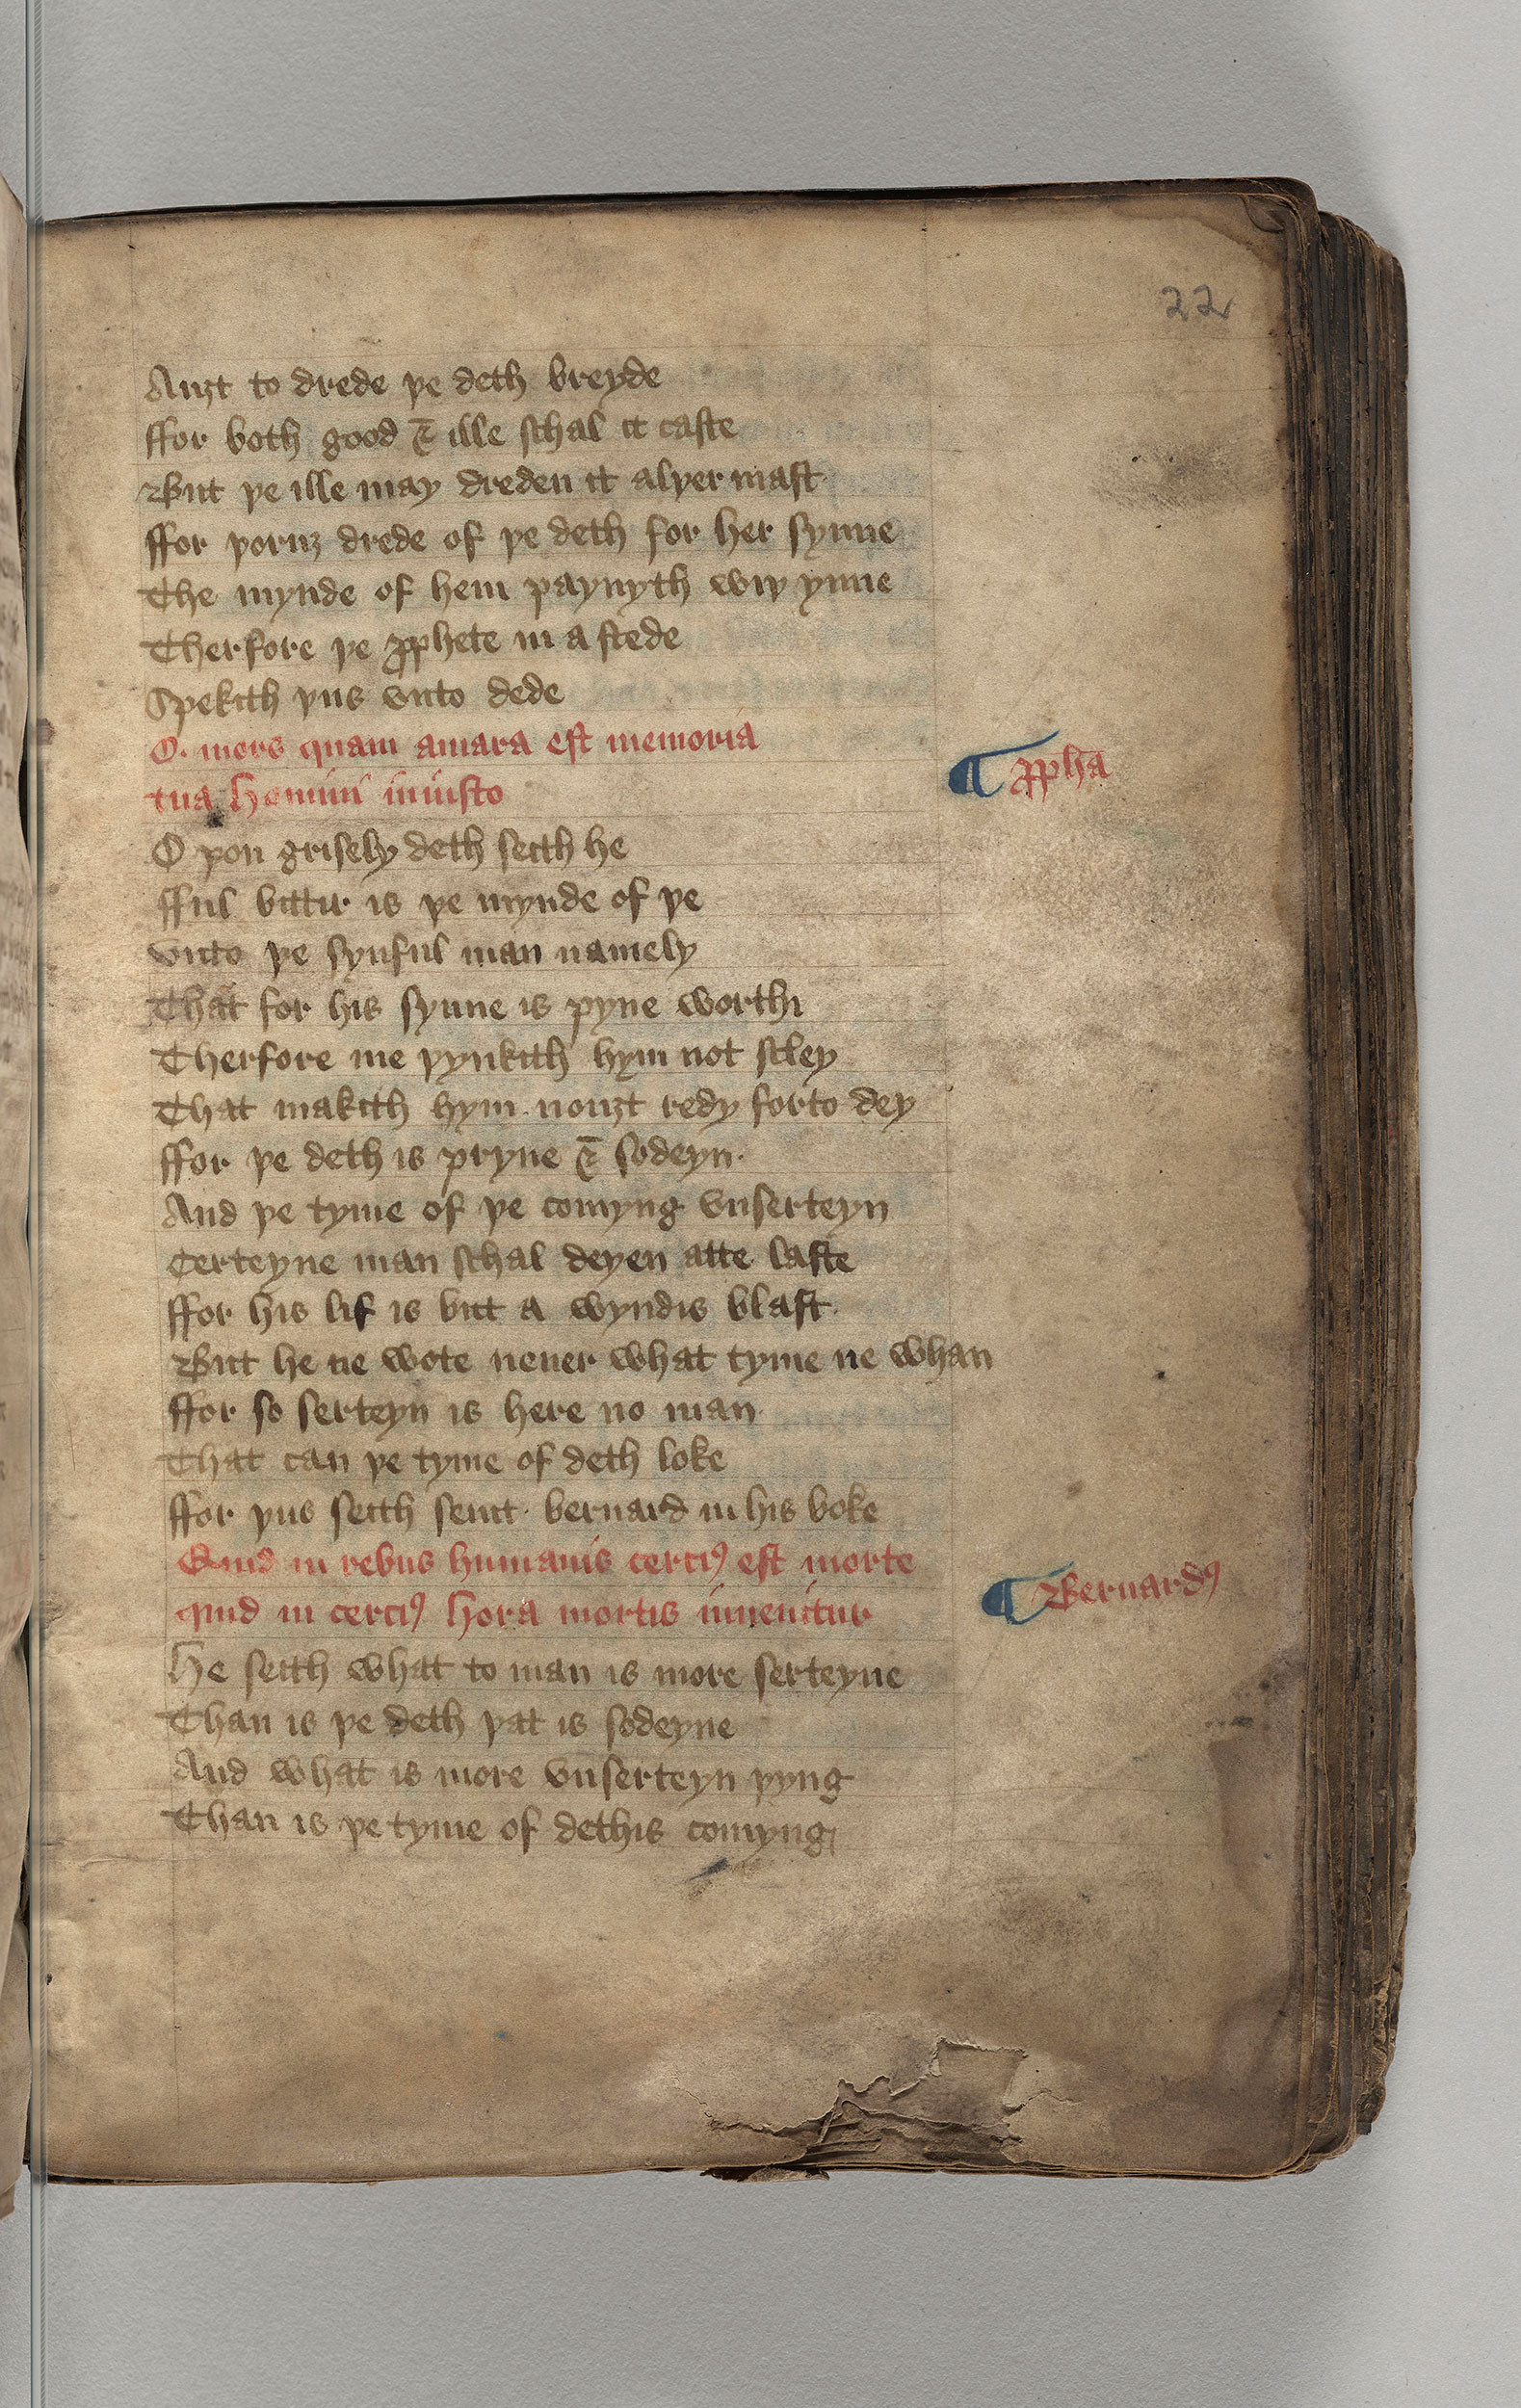 22
Auȝt to drede þe deth breyde
ffor both good & ille schal it taste
But þe ille may dreden it alþer mast
ffor þoruȝ drede of þe deth for her synne
The mynde of hem paynyth wiþ ynne
Therfore þe ꝓphete in a stede
Spekith þus vnto dede
O· mors quam amara est memoria
tua homini iniusto
¶ ꝓpha
O þou grisely deth seith he
fful bittir is þe mynde of þe
vnto þe synful man namely
That for his synne is pyne worthi
Therfore me þynkith hym not sley
That makith hym nouȝt redy forto dey
ffor þe deth is pryue & sodeyn·
And þe tyme of þe comyng vnserteyn
Certeyne man schal deyen atte laste
ffor his lif is but a wyndis blast·
But he ne wote neuer what tyme ne whan
ffor so serteyn is here no man
That can þe tyme of deth loke
ffor þus seith seint· bernard in his boke
Quid in rebus humanis certiꝰ est morte
quid in certiꝰ hora mortis inuenitur
¶ Bernardꝰ
He seith what to man is more serteyne
Than is þe deth þat is sodeyne
And what is more vnserteyn þyng
Than is þe tyme of dethis comyng